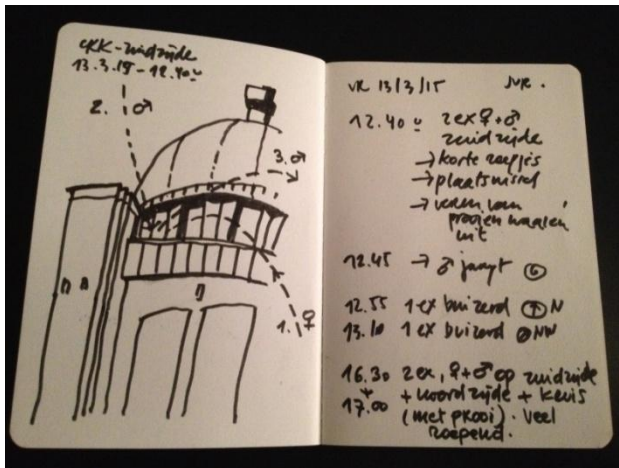 zuidzijde
13.3.15 - 12.40u
2. ♂
3. ♂
1. ♀
VR 13/3/15
12.40u 2 ex ♀+♂
zuidzijde
→ korte roepjes
→ plaatswissel
→ veren van
prooien waaien
uit
12.45 → ♂ jaagt
12.55 1 ex buizerd ↑ N
13.10 1 ex buizerd NW
16.30 2 ex, ♀+♂ op zuidzijde
+ noordzijde + kruis
17.00 (met prooi). Veel
roepend.